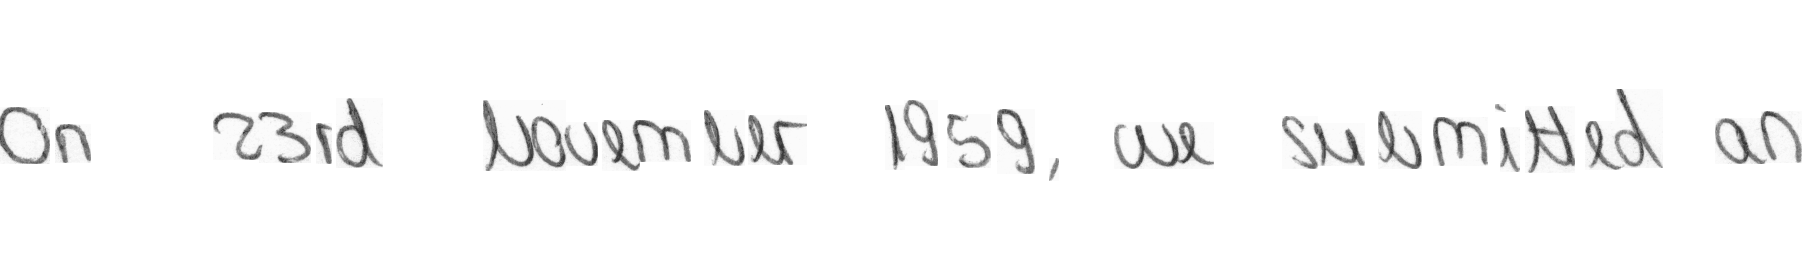 On 23rd November 1959, we submitted an